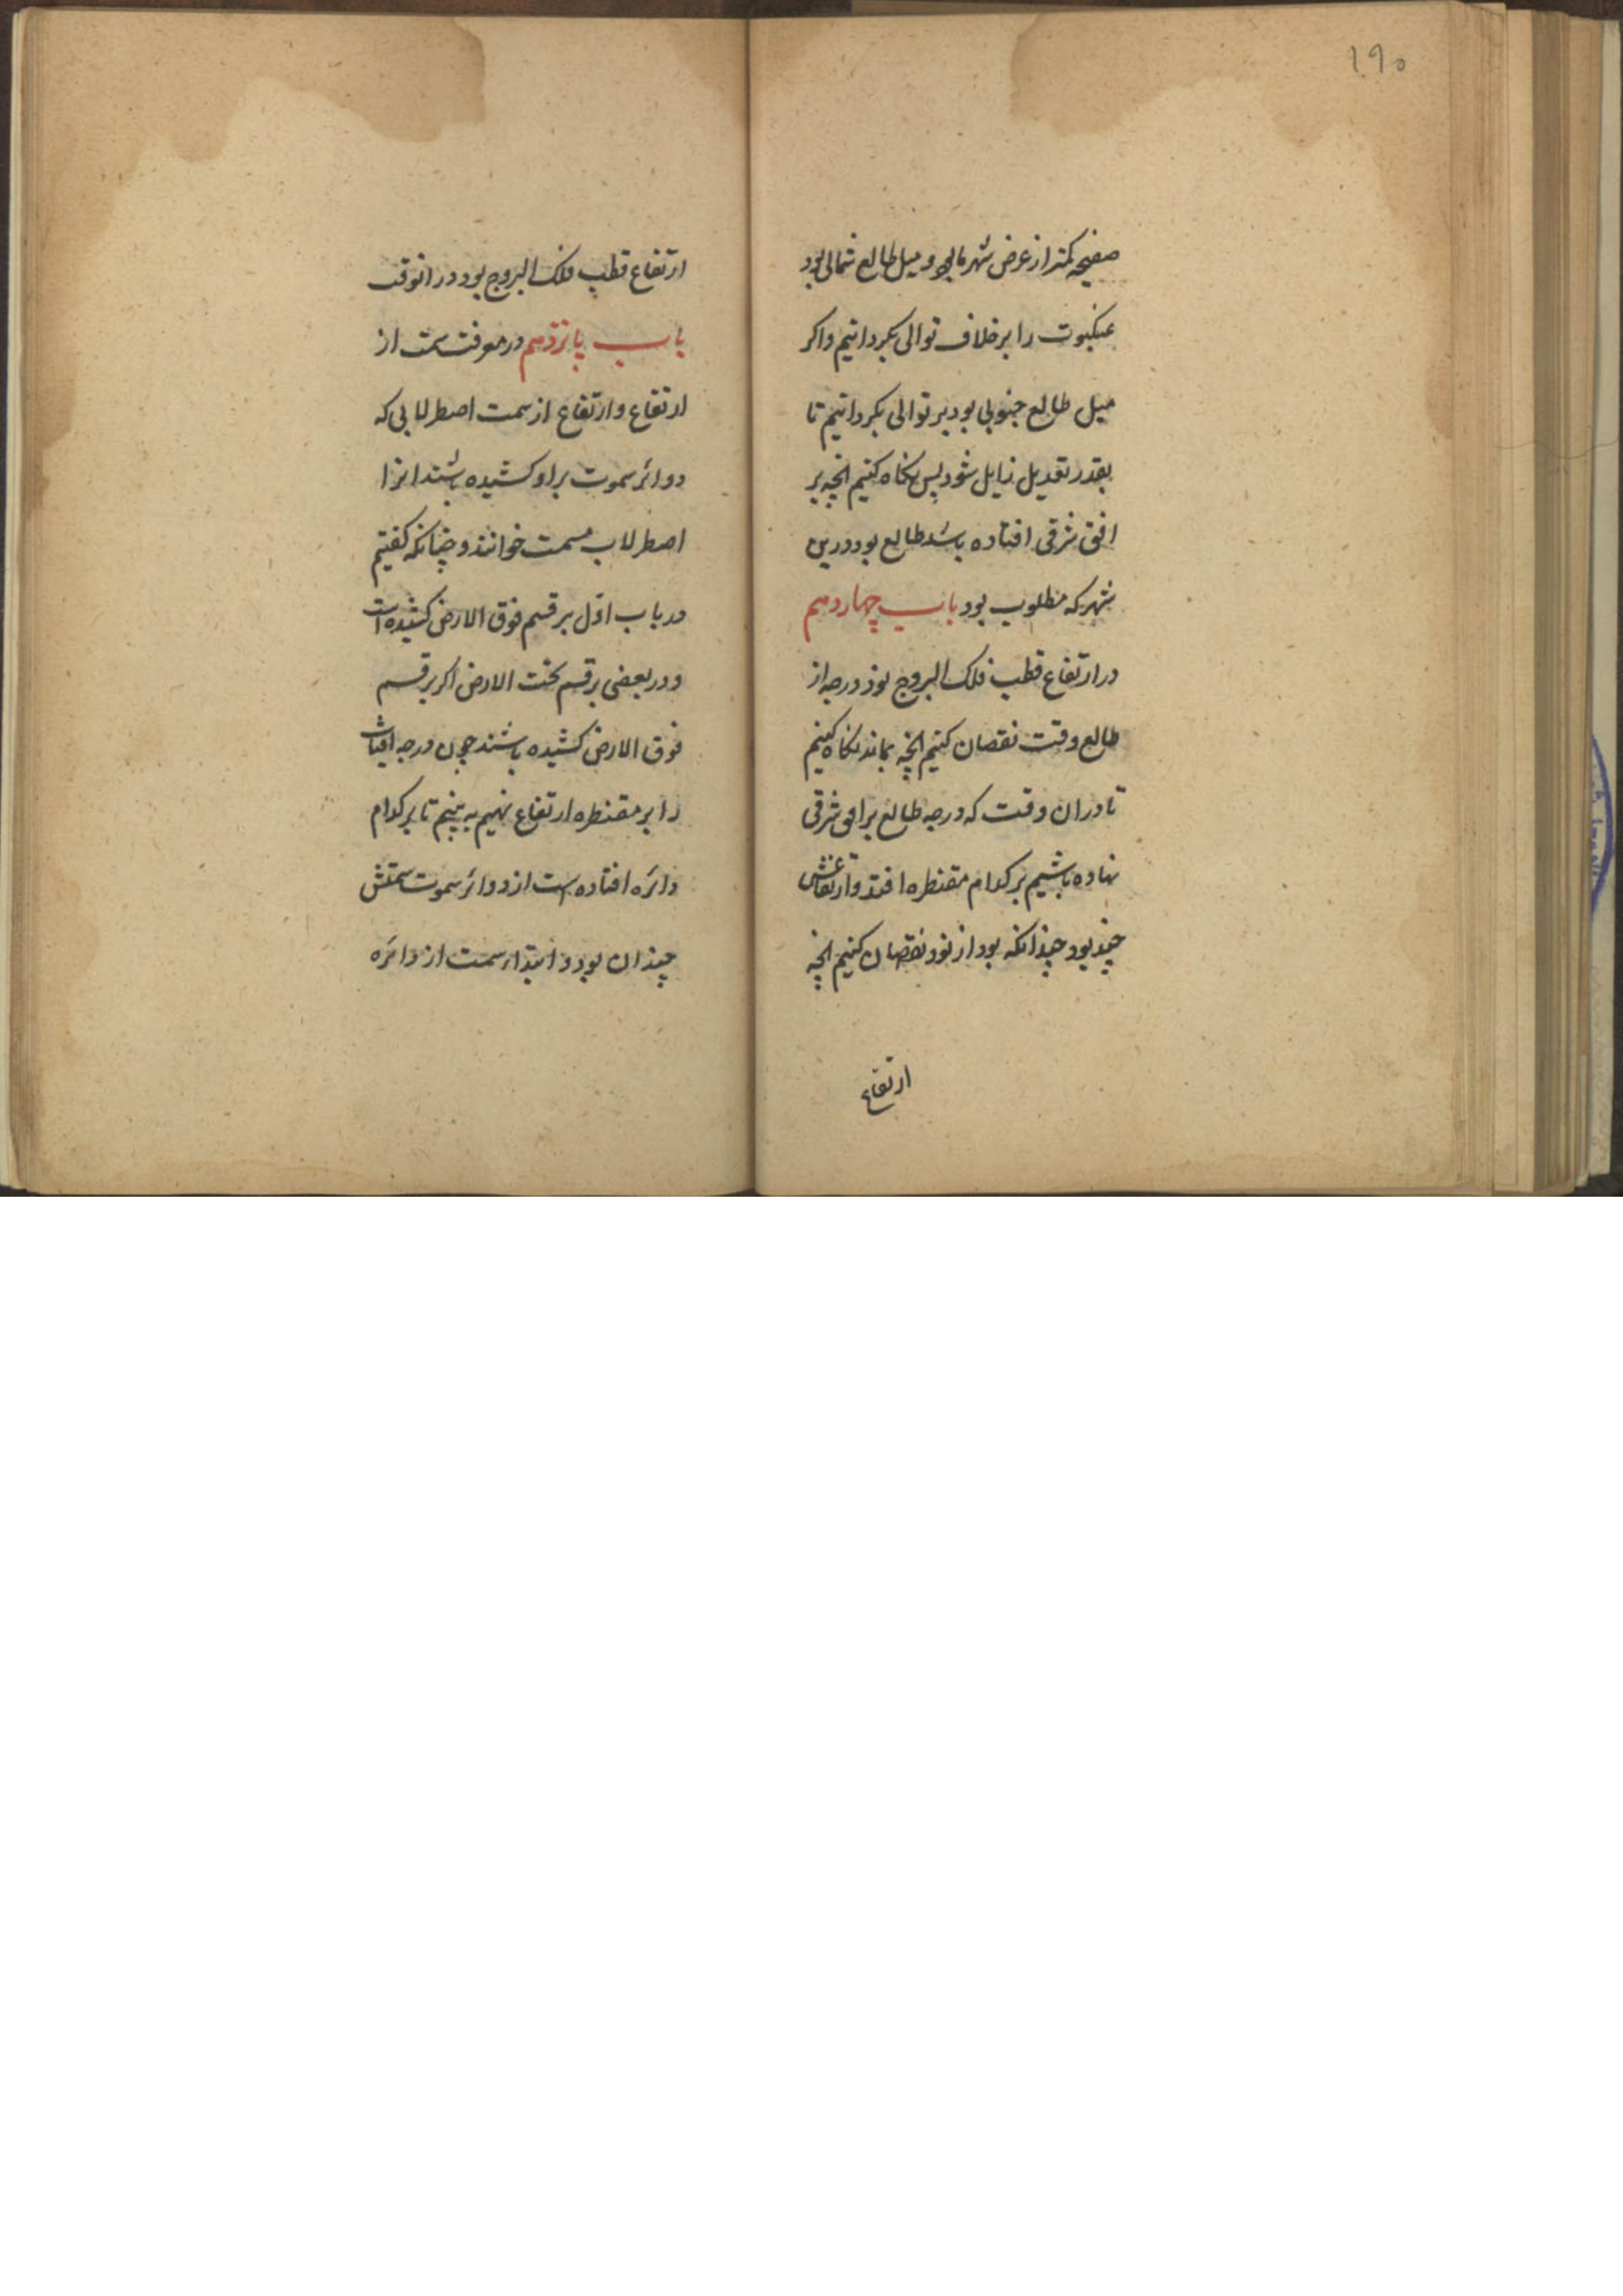 ۱۹۰
صفیحه کمتر از عرض شهر ما بود و میل طالع شمالی بود
عنکبوت را بر خلاف توالی بکردانیم واکر
میل طالع جنوبی بود بر توالی بکردانیم تا
بقدر تعدیل زایل شود پس نکاه کنیم انچه بر
افق شرقی افتاده باشد طالع بود درین
شهر که مطلوب بود باب چهاردهم
در ارتفاع قطب فلک البروج نود درجه از
طالع وقت نقصان کنیم انچه بماند نکاه کنیم
تا دران وقت که درجه طالع بر افق شرقی
نهاده باشیم بر کدام مقنطره افتد وارتفاعش
چند بود چندانکه بود از نود نقصان کنیم انچه
ارتفاع
ارتفاع قطب فلک البروج بود در انوقت
باب پانزدهم در معرفت سمت از
ارتفاع وارتفاع از سمت اصطرلابی که
دوائر سموت براو کشیده باشند انرا
اصطرلاب مسمت خوانند و چنانکه کفتیم
در باب اول بر قسم فوق الارض کشیده است
و در بعضی بر قسم تحت الارض اکر بر قسم
فوق الارض کشیده باشند چون درجه افتاب
را بر مقنطره ارتفاع نهیم به بینیم تا بر کدام
دائره افتاده است از دوائر سموت سمتش
چندان بود و ابتداء سمت از دائره